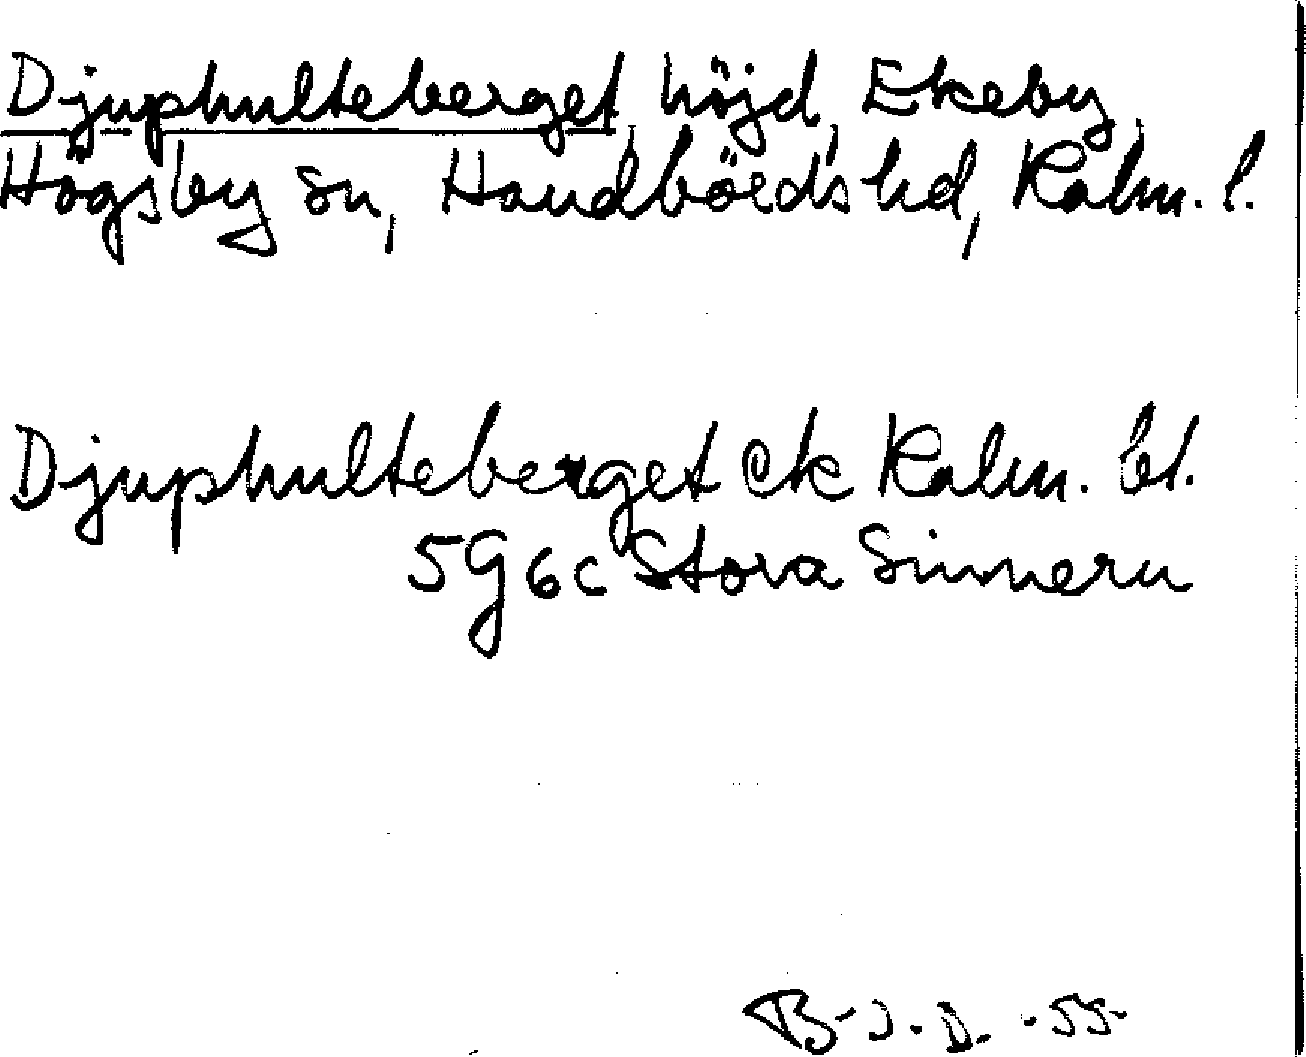 Djuphulteberget, höjd, Ekeby,
Högsby sn, Handbörds hd, Kalm. l.
Djuphulteberget ek Kalm. bl.
5g6c Stora Sinnern
B-J. D. -55-